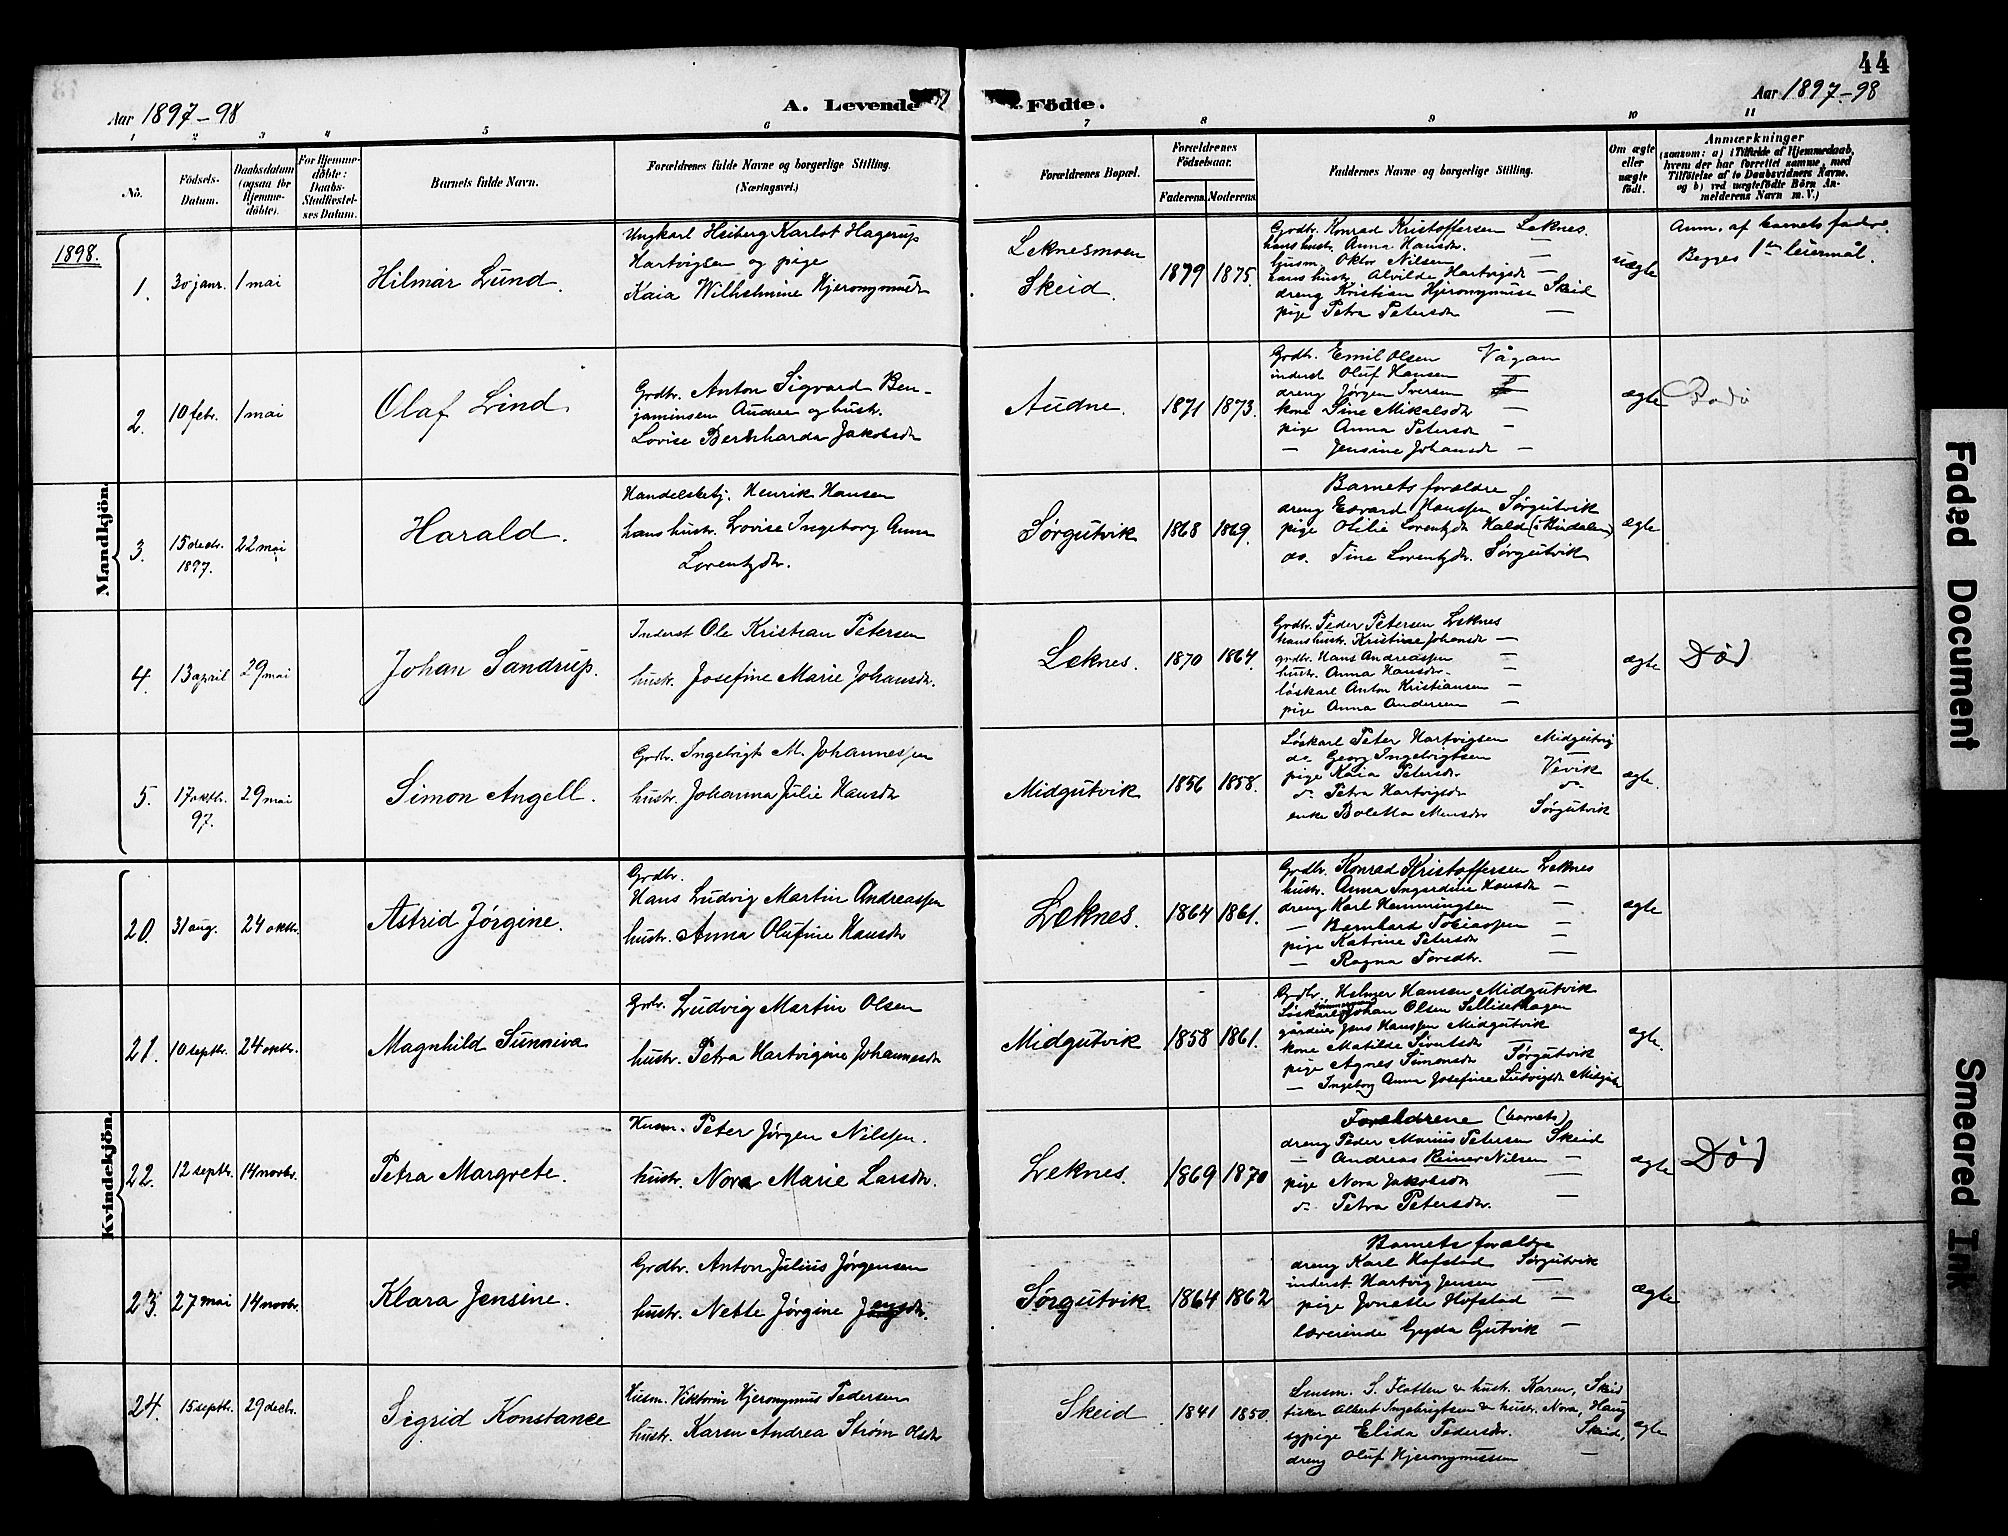 44
Aar 1897-98
A. Levende
Födte.
Aar 1897-98
1 2 3 4 5 6 7 8 9 10 11
No.
Födsels-Datum.
Daabsdatum (ogsaa for Hjemme-döbte).
For Hjemme-döbte: Daabs-Stadfæstel-ses Datum.
Barnets fulde Navn.
Forældrenes fulde Navne og borgerlige Stilling. (Næringsvei.)
Forældrenes Bopæl.
Forældrenes Födselsaar.
Faderens Moderens
Faddernes Navne og borgerlige Stilling.
Om ægte eller uægte födt.
Anmærkninger
(saasom: a) i Tilfælde af Hjemmedaab, hvem der har forrettet samme, med Tilföielse af to Daabsvidners Navne. og b) ved uægtefödte Börn Anmelderens Navn m. V.)
1898.
Mandkjön.
1. 30 janr. 1 mai
Hilmar Lund.
Ungkarl Heiberg Karlot Hagerup
Hartvigsen og pige
Kaia Wilhelmine Hjeronymusdr
Leknesmoen
Skeid.
1879 1875.
Grdbr. Konrad Kristoffersen Leknes.
hans hustr. Anna Hansdr. —
husm. Oktor Nilsen —
hans hustr. Alvilde Hartvigsdr —
dreng Kristian Hjeronymusen Skeid
pige Petra Petersdr —
uægte
Anm. af barnets fader.
Begges 1ste leiermål.
2. 10 febr. 1 mai
Olaf Lind.
Grdbr. Anton Sigvard Ben-
jaminsen Audne og hustr.
Lovise Bernharda Jakobsdr
Audne.
1871 1873.
Grdbr. Emil Olsen Vågan
inderst Oluf Hansen —
dreng Jørgen Iversen
kone Sine Mikalsdr —
pige Anna Petersdr —
— Jensine Johansdr —
ægte
Bodö
3. 15 decbr. 1897. 22 mai
Harald.
Handelsbetj. Henrik Hansen
hans hustr. Lovise Ingeborg Anna
Lorentzdr.
Sørgutvik
1868 1869.
Barnets forældre
dreng Edvard Hanssen Sørgutvik
pige Otilie Lorentzdr Hald (i Hindalen)
do. Tine Lorentzdr. Sørgutvik
ægte
4. 13 april 29 mai
Johan Sandrup.
Inderst Ole Kristian Petersen
hustr. Josefine Marie Johansdr.
Leknes.
1870 1864.
Grdbr. Peder Petersen Leknes
hans hustr. Kristine Johansdr —
grdbr. Hans Andreassen —
hustr. Anna Hansdr. —
löskarl Anton Kristiansen —
pige Anna Andersen —
ægte
Död
5. 17 oktbr. 97. 29 mai
Simon Angell.
Grdbr. Ingebrigt M. Johannessen
hustr. Johanna Julie Hansdr
Midgutvik
1856 1858.
Löskarl Peter Hartvigsen Midgutvig
do Georg Ingebrigtsen —
pige Kaia Petersdr Vevik
do Petra Hartvigsdr do
enke Boletta Monsdr Sørgutvik
ægte.
Kvindekjön.
20. 31 aug. 24 oktbr.
Astrid Jørgine.
Grdbr.
Hans Ludvig Martin Andreassen
hustr. Anna Olufine Hansdr
Leknes.
1864 1861.
Grdbr. Konrad Kristoffersen Leknes
hustr. Anna Ingerdine Hansdr —
dreng Karl Hemmingsen —
— Bernhard Tobiassen —
pige Katrine Petersdr —
— Ragna Torsdtr. —
ægte
21. 10 septbr. 24 oktbr.
Magnhild Sunniva
Grdbr. Ludvig Martin Olsen
hustr. Petra Hartvigine Johannesdr
Midgutvik
1858 1861.
Grdbr. Helmer Hansen Midgutvik
Löskarl Johan Olsen Sellisethagen
Jens Hanssen Midgutvik
kone Matilde Sivertsdr —
pige Agnes Simonsdr Sørgutvik
— Ingeborg Anna Josefine Ludvigsdr
ægte.
22. 12 septbr. 14 novbr.
Petra Margrete.
Husm. Peter Jørgen Nilssen.
hustr. Nora Marie Larsdr.
Leknes.
1869 1870
Forældrene (barnets)
dreng Peder Marius Petersen Skeid
— Andreas Reiner Nilsen —
pige Nora Jakobsdr —
do Petra Petersdr. —
ægte
Död
23. 27 mai 14 novbr.
Klara Jensine.
Grdbr. Anton Julius Jørgensen
hustr. Nette Jørgine Jensdr.
Sørgutvik
1864 1862
Barnets forældre
dreng Karl Hofstad Sørgutvik
inderst Hartvig Jensen —
pige Jonette Hofstad —
lærerinde Gyda Gutvik —
ægte
24. 15 septbr. 29 decbr.
Sigrid Konstance
Husm. Viktorin Hjeronymus Pedersen
hustr. Karen Andrea Strøm Olsdr
Skeid
1841 1850.
Lensm. S. Flatten & hustr. Karen, Skeid
Albert Ingebrigtsen & hustr. Nora, Haug
sypige Elida Pedersdr. Skeid,
dreng Oluf Hjeronymussen —
ægte
Faded Document
Smeared Ink